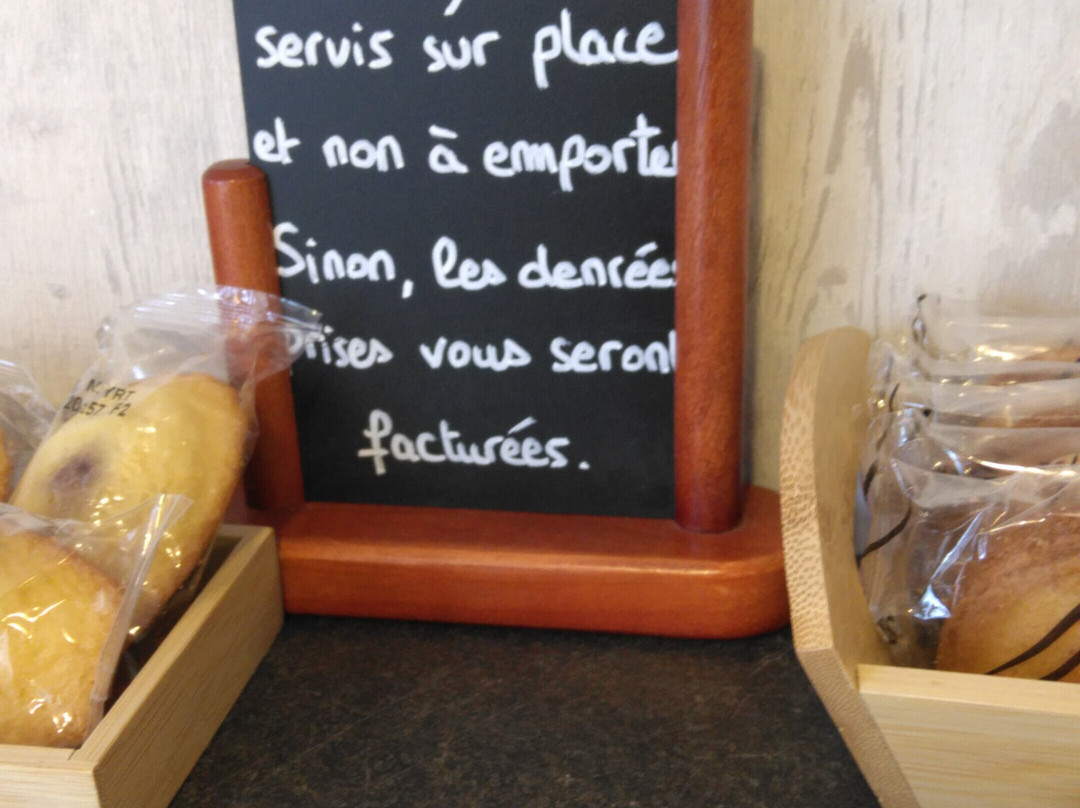 servis sur place
et non à emporter
Sinon, les denrées
prises vous seront
facturées.